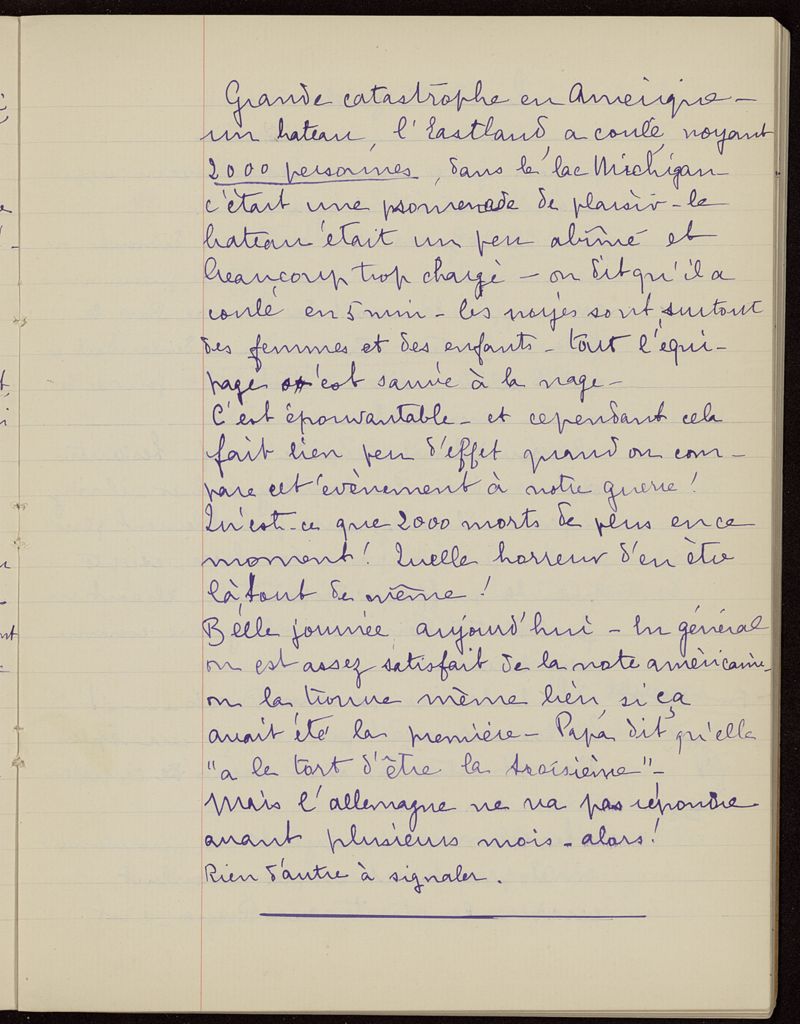 Grande catastrophe en Amérique –
un bateau, l'Eastland, a coulé, noyant
2000 personnes, dans le lac Michigan –
c'était une promenade de plaisir – le
bateau était un peu abîmé et
beaucoup trop chargé – on dit qu'il a
coulé en 5 min – les noyés sont surtout
des femmes et des enfants – tout l'équi-
page s'est sauvé à la nage –
C'est épouvantable – et cependant cela
fait bien peu d'effet quand on com-
pare cet évènement à notre guerre !
Qu'est-ce que 2000 morts de plus en ce
moment ! Quelle horreur d'en être
là, tout de même !
Belle journée aujourd'hui – En général
on est assez satisfait de la note américaine –
on la trouve même bien, si ça
avait été la première – Papa dit qu'elle
"a le tort d'être la troisième" –
Mais l'allemagne ne va pas répondre
avant plusieurs mois – alors !
Rien d'autre à signaler.